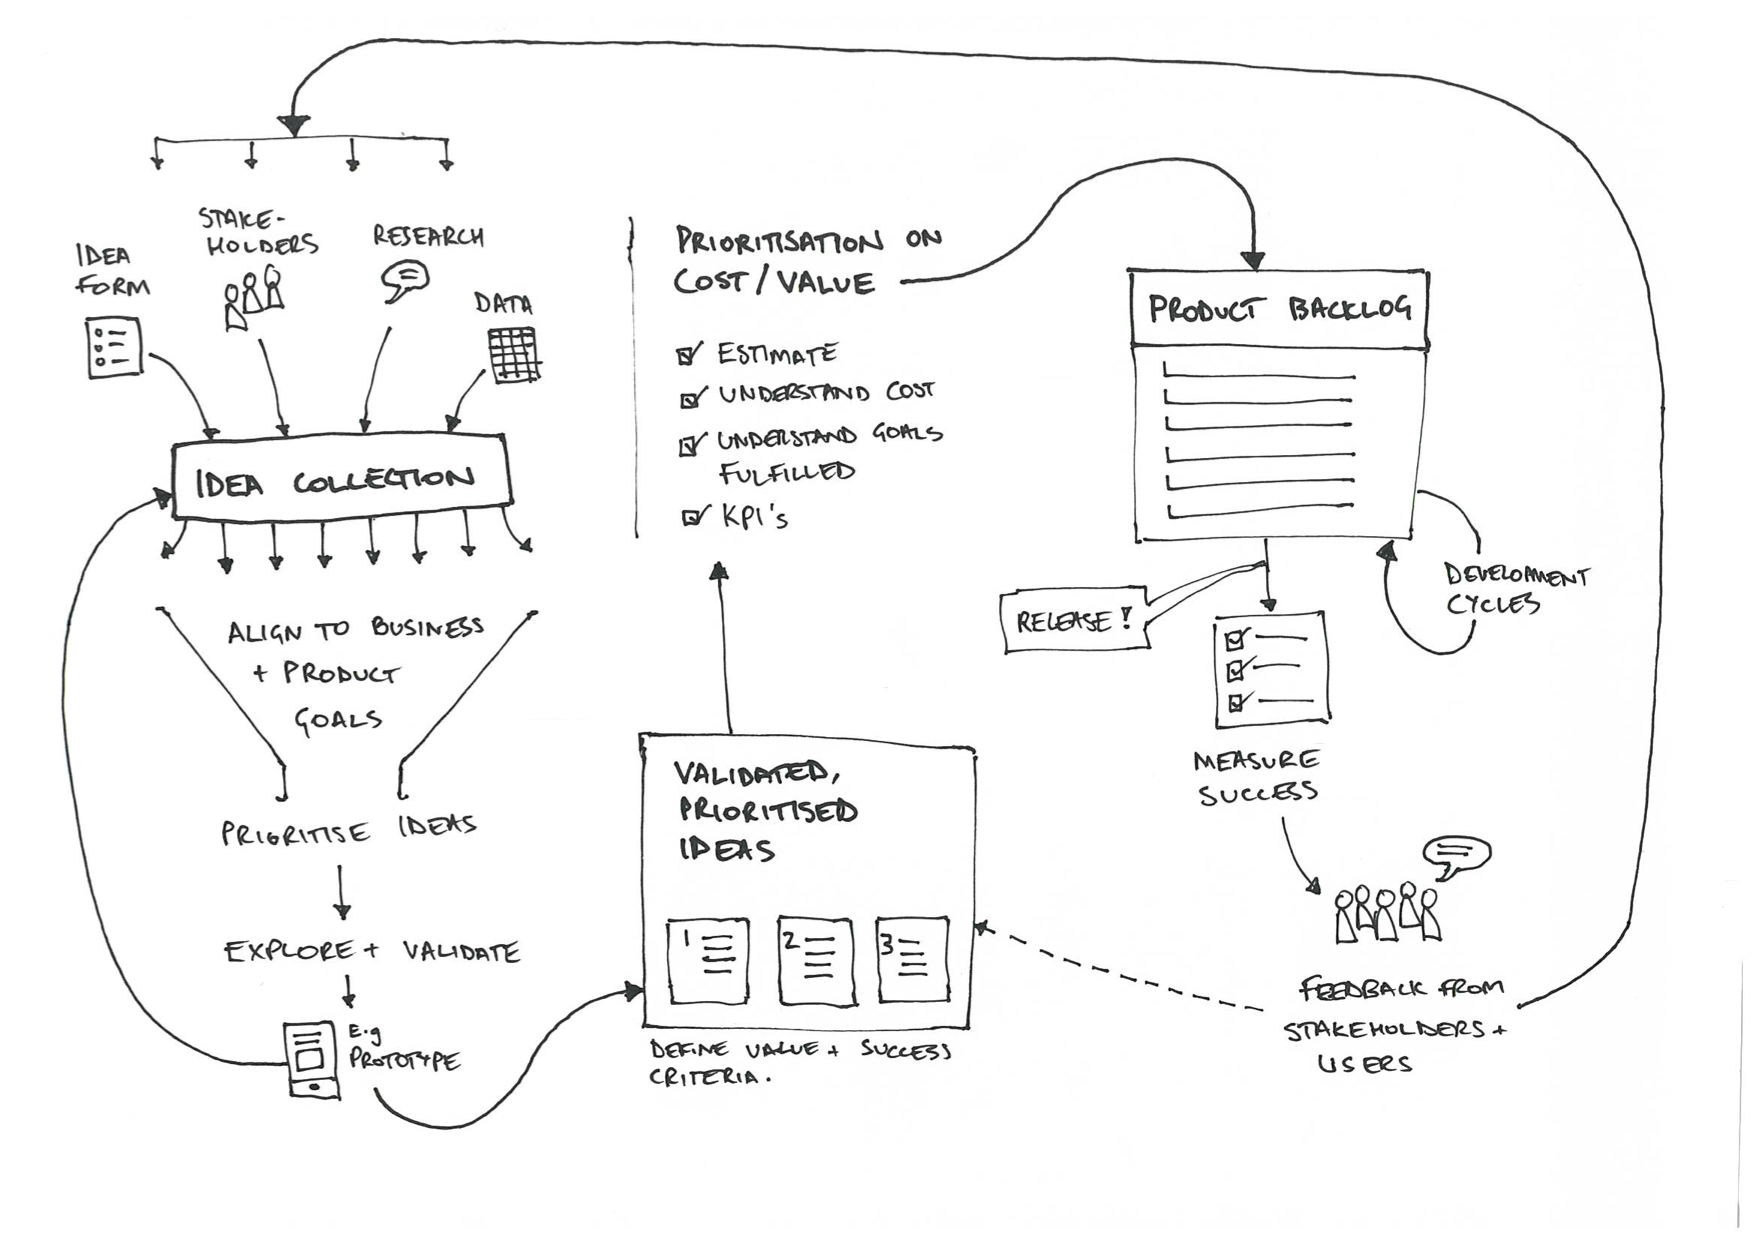 IDEA
FORM
STAKE-
HOLDERS
RESEARCH
DATA
IDEA COLLECTION
ALIGN TO BUSINESS
+ PRODUCT
GOALS
PRIORITISE IDEAS
EXPLORE + VALIDATE
E.g
PROTOTYPE
VALIDATED,
PRIORITISED
IDEAS
1
2
3
DEFINE VALUE + SUCCESS
CRITERIA.
PRIORITISATION ON
COST/VALUE
ESTIMATE
UNDERSTAND COST
UNDERSTAND GOALS
FULFILLED
KPI's
PRODUCT BACKLOG
DEVELOPMENT
CYCLES
RELEASE!
MEASURE
SUCCESS
FEEDBACK FROM
STAKEHOLDERS +
USERS